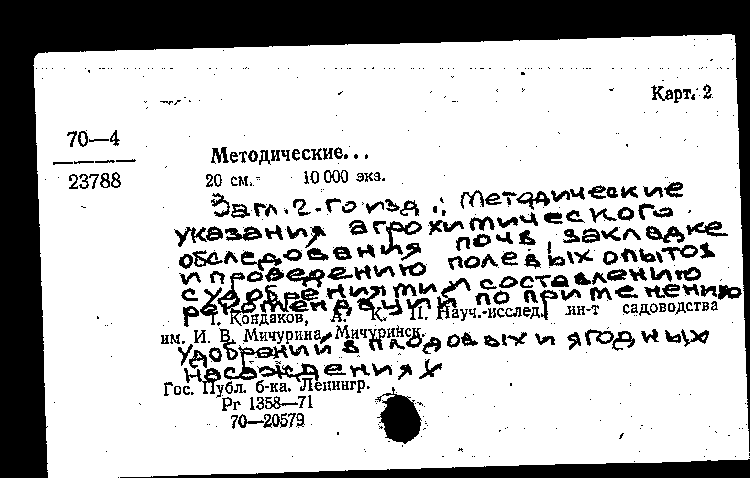 Карт. 2
70—4
23788
Методические...
20 см. 10 000 экз.
Загл. 2-го изд.: Методические
указания агрохимического
обследования почв, закладке
и проведению полевых опытов
с удобрениями и составлению
рекомендаций по применению
I. Кондаков, А. К. II. Науч.-исслед. ин-т садоводства
им. И. В. Мичурина, Мичуринск.
удобрений в плодовых и ягодных
насаждениях
Гос. Публ. б-ка. Ленингр.
Рг 1358—71
70—20579